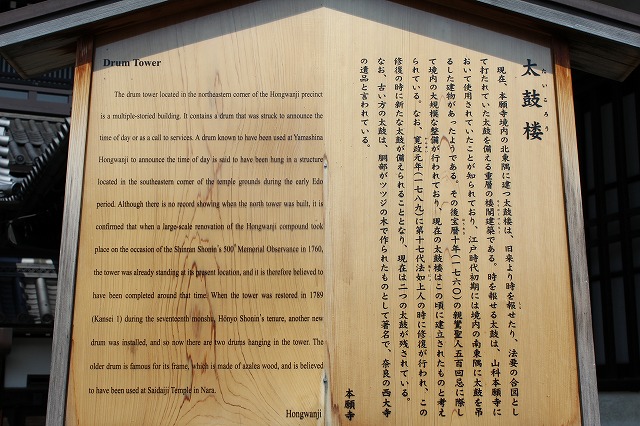 Drum Tower
The drum tower located in the northeastern corner of the Hongwanji precinct
is a multiple-storied building. It contains a drum that was struck to announce the
time of day or as a call to services. A drum known to have been used at Yamashina
Hongwanji to announce the time of day is said to have been hung in a structure
located in the southeastern corner of the temple grounds during the early Edo
period. Although there is no record showing when the north tower was built, it is
confirmed that when a large-scale renovation of the Hongwanji compound took
place on the occasion of the Shinran Shonin's 500th Memorial Observance in 1760,
the tower was already standing at its present location, and it is therefore believed to
have been completed around that time. When the tower was restored in 1789
(Kansei 1) during the seventeenth monshu, Hōnyo Shonin's tenure, another new
drum was installed, and so now there are two drums hanging in the tower. The
older drum is famous for its frame, which is made of azalea wood, and is believed
to have been used at Saidaiji Temple in Nara.
Hongwanji
太鼓楼
たいころう
現在、本願寺境内の北東隅に建つ太鼓楼は、旧来より時を報せたり、法要の合図とし
て打たれていた太鼓を備える重層の楼閣建築である。時を報せる太鼓は、山科本願寺に
おいて使用されていたことが知られており、江戸時代初期には境内の南東隅に太鼓を吊
るした建物があったようである。その後宝暦十年(一七六〇)の親鸞聖人五百回忌に際し
て境内の大規模な整備が行われており、現在の太鼓楼はこの頃に建立されたものと考え
られている。なお、寛政元年(一七八九)に第十七代法如上人の時に修復が行われ、この
修復の時に新たな太鼓が備えられることとなり、現在は二つの太鼓が残されている。
なお、古い方の太鼓は、胴部がツツジの木で作られたものとして著名で、奈良の西大寺
の遺品と言われている。
本願寺